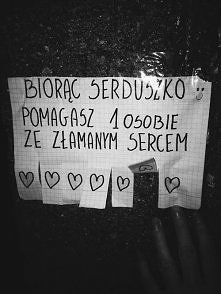 BIORĄC SERDUSZKO :)
POMAGASZ 1 OSOBIE
ZE ZŁAMANYM SERCEM